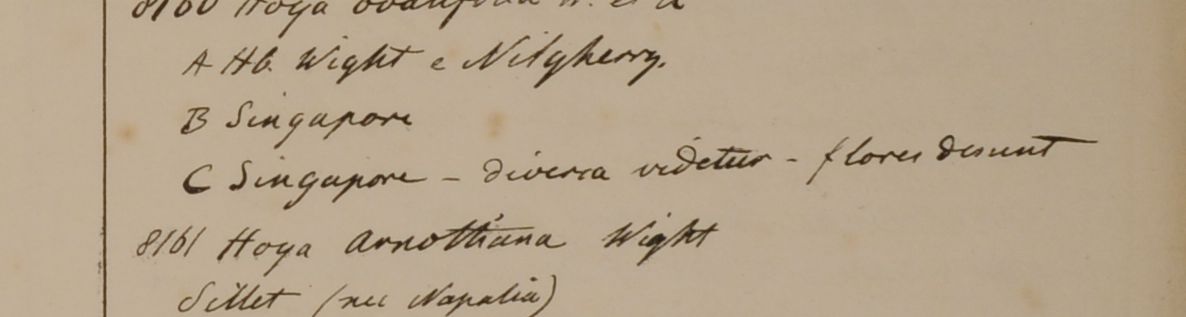 8160 Hoya ovalifolia W. et A
A Hb. Wight e Nilgherry.
B Singapore
C Singapore - diversa videtur - flores desunt
8161 Hoya Arnottiana Wight
Sillet (nec Napalia)